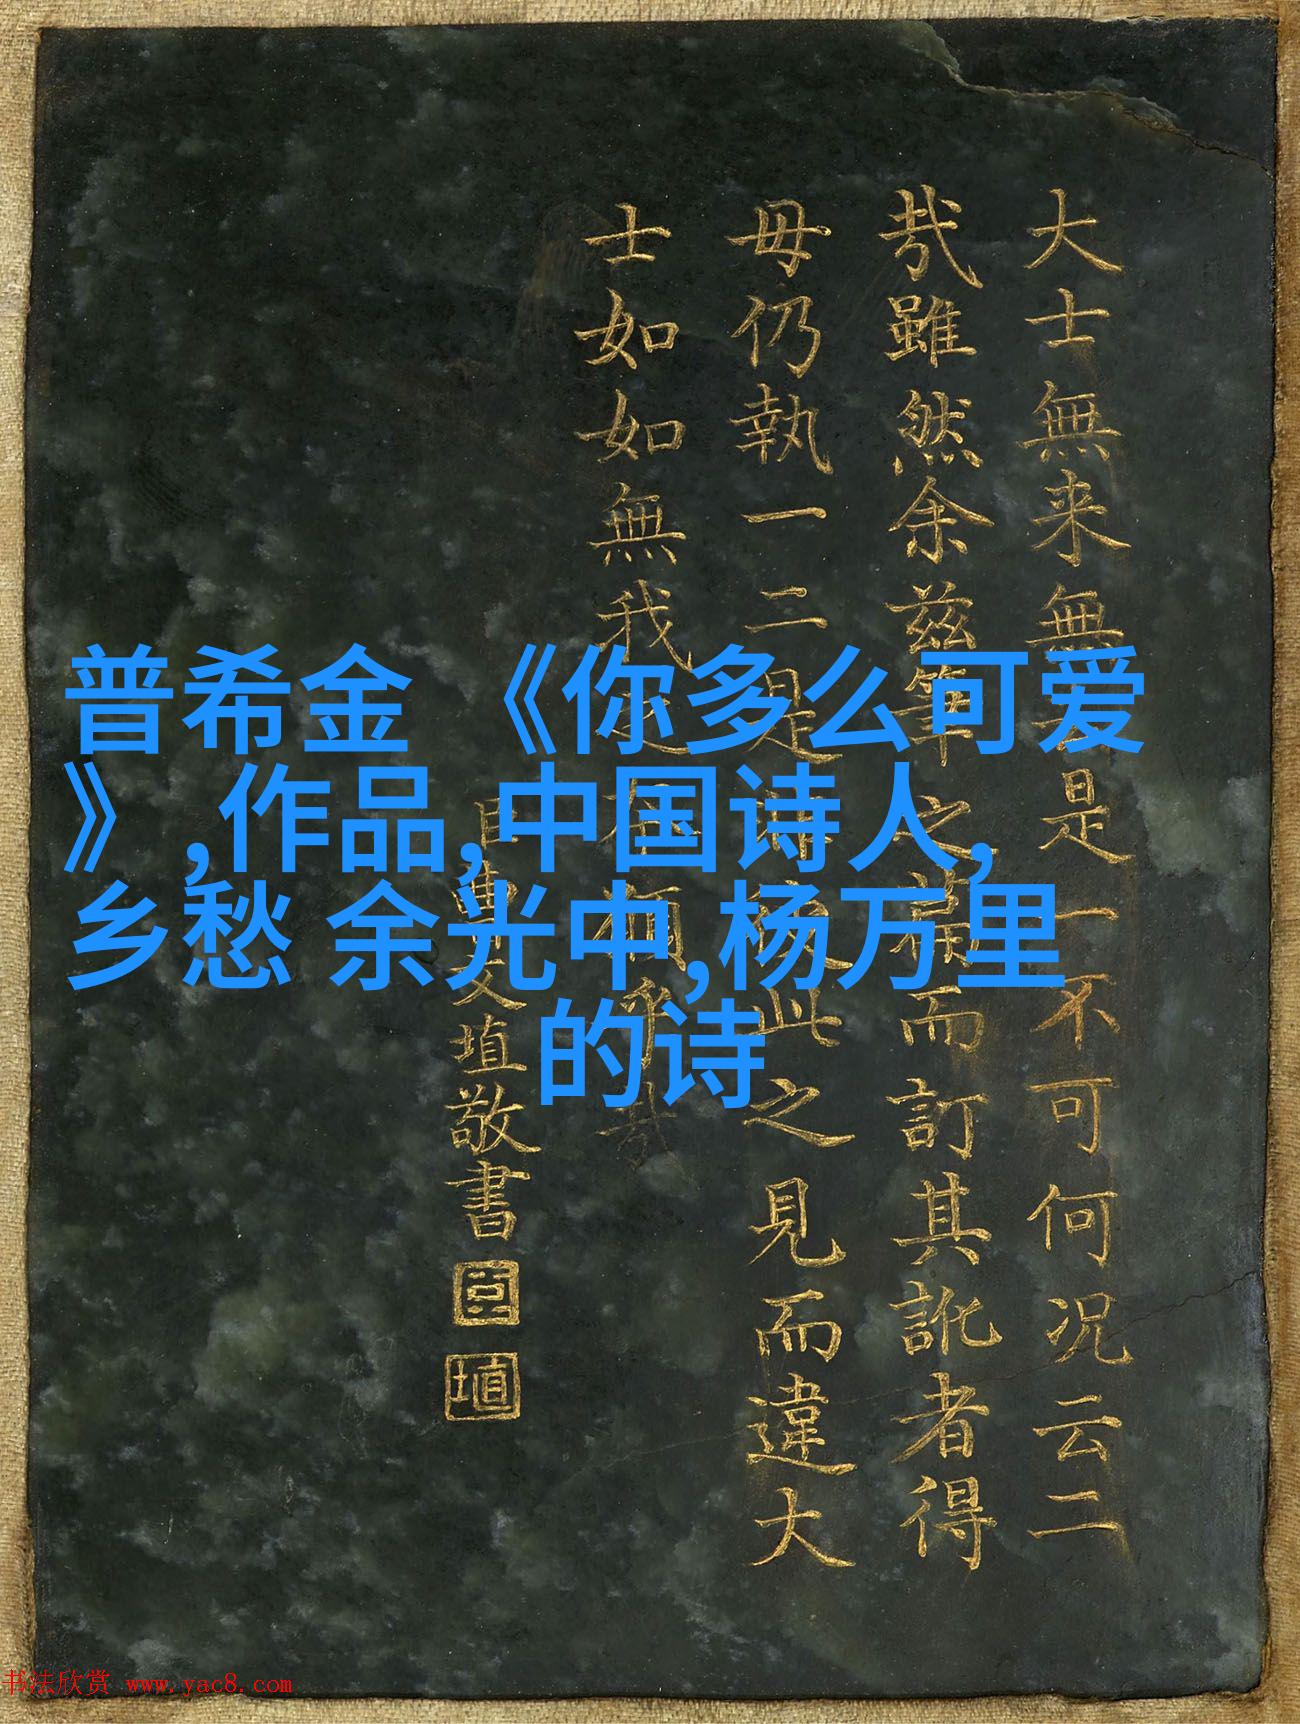 普希金 《你多么可爱
》,作品,中国诗人,
乡愁 余光中,杨万里
的诗
大士無来無去是一不可何况云二
哉雖然余茲筆之誤而訂其訛者得
毋仍執一二是 此之見而違大
士如如無我之 乎哉
臣曹文埴敬書
臣
埴
书法欣赏 www.yac8.com